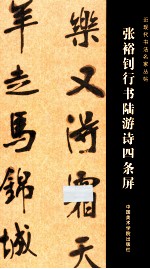 近现代书法名家丛帖
张裕钊行书陆游诗四条屏
中国美术学院出版社
樂又得霜天
年走馬錦城